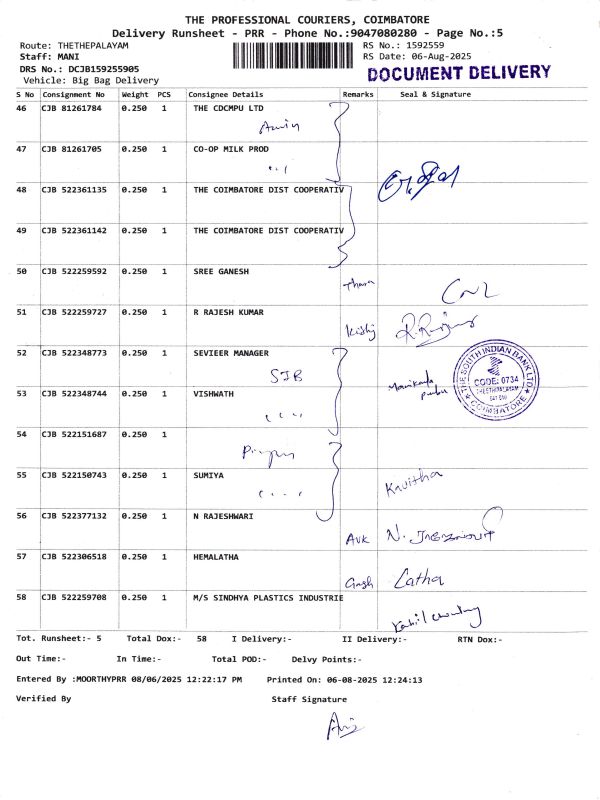 THE PROFESSIONAL COURIERS, COIMBATORE
Delivery Runsheet - PRR - Phone No.:9047080280 - Page No.:5
Route: THETHEPALAYAM RS No.: 1592559
Staff: MANI RS Date: 06-Aug-2025
DRS No.: DCJB159255905
Vehicle: Big Bag Delivery
DOCUMENT DELIVERY
S No Consignment No Weight PCS Consignee Details Remarks Seal & Signature
46 CJB 81261784 0.250 1 THE CDCMPU LTD
47 CJB 81261705 0.250 1 CO-OP MILK PROD
48 CJB 522361135 0.250 1 THE COIMBATORE DIST COOPERATIV
49 CJB 522361142 0.250 1 THE COIMBATORE DIST COOPERATIV
50 CJB 522259592 0.250 1 SREE GANESH
51 CJB 522259727 0.250 1 R RAJESH KUMAR
52 CJB 522348773 0.250 1 SEVIEER MANAGER
SIB
THE SOUTH INDIAN BANK LTD.
CODE: 0734
THELETHIPALAYAM
COIMBATORE
53 CJB 522348744 0.250 1 VISHWATH
54 CJB 522151687 0.250 1
55 CJB 522150743 0.250 1 SUMIYA
Kavitha
56 CJB 522377132 0.250 1 N RAJESHWARI
57 CJB 522306518 0.250 1 HEMALATHA
Latha
58 CJB 522259708 0.250 1 M/S SINDHYA PLASTICS INDUSTRIE
Tot. Runsheet:- 5 Total Dox:- 58 I Delivery:- II Delivery:- RTN Dox:-
Out Time:- In Time:- Total POD:- Delvy Points:-
Entered By :MOORTHYPRR 08/06/2025 12:22:17 PM Printed On: 06-08-2025 12:24:13
Verified By Staff Signature